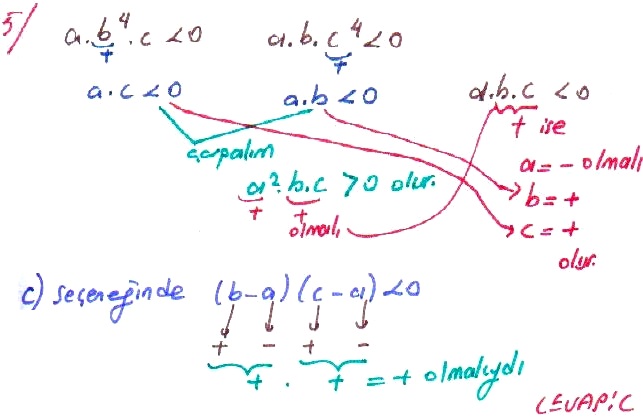 5/
a.b⁴.c <0 a.b.c⁴<0
+ +
a.c <0 a.b <0 a.b.c <0
çarpalım + ise
a²·b.c >0 olur. a = - olmalı
+ + b = +
olmalı c = +
olur.
c) seçereğinde (b-a)(c-a)<0
+ - + -
+ . + = + olmalıydı
CEVAP:C